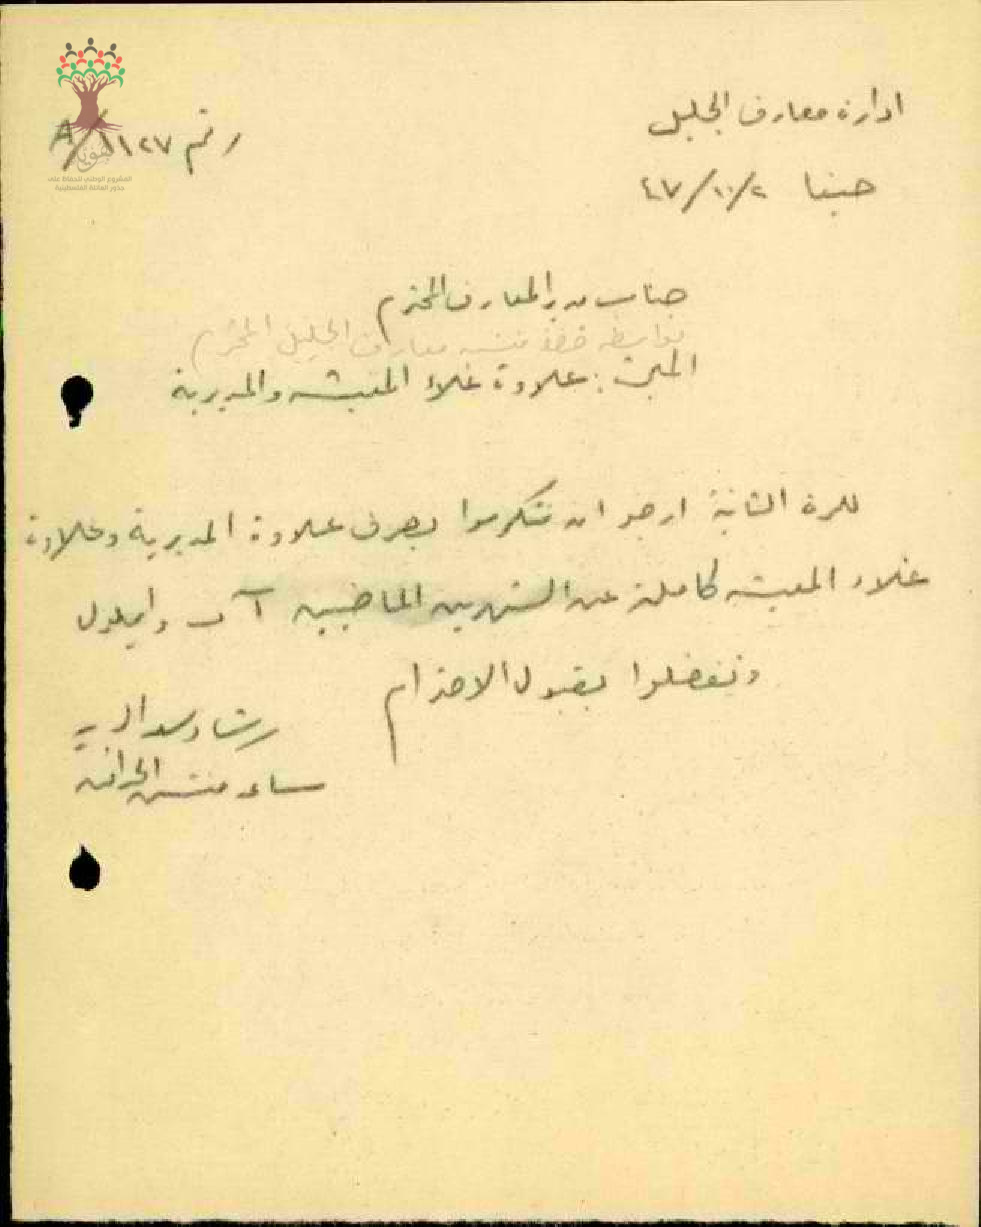 ادارة معارف الجليل
رقم ١١٢٧/A
حيفا ٢/١٠/٤٧
المشروع الوطني للحفاظ على
جذور العائلة الفلسطينية
جناب مدير المعارف المحترم
بواسطة حضرة مفتش معارف الجليل المحترم
علاوة غلاء المعيشة والمديرية
للمرة الثانية ارجو ان تتكرموا بصرف علاوة المديرية وعلاوة
غلاء المعيشة كاملة عن الشهرين الماضيين آب وايلول
وتفضلوا بقبول الاحترام
رشاد
مفتش